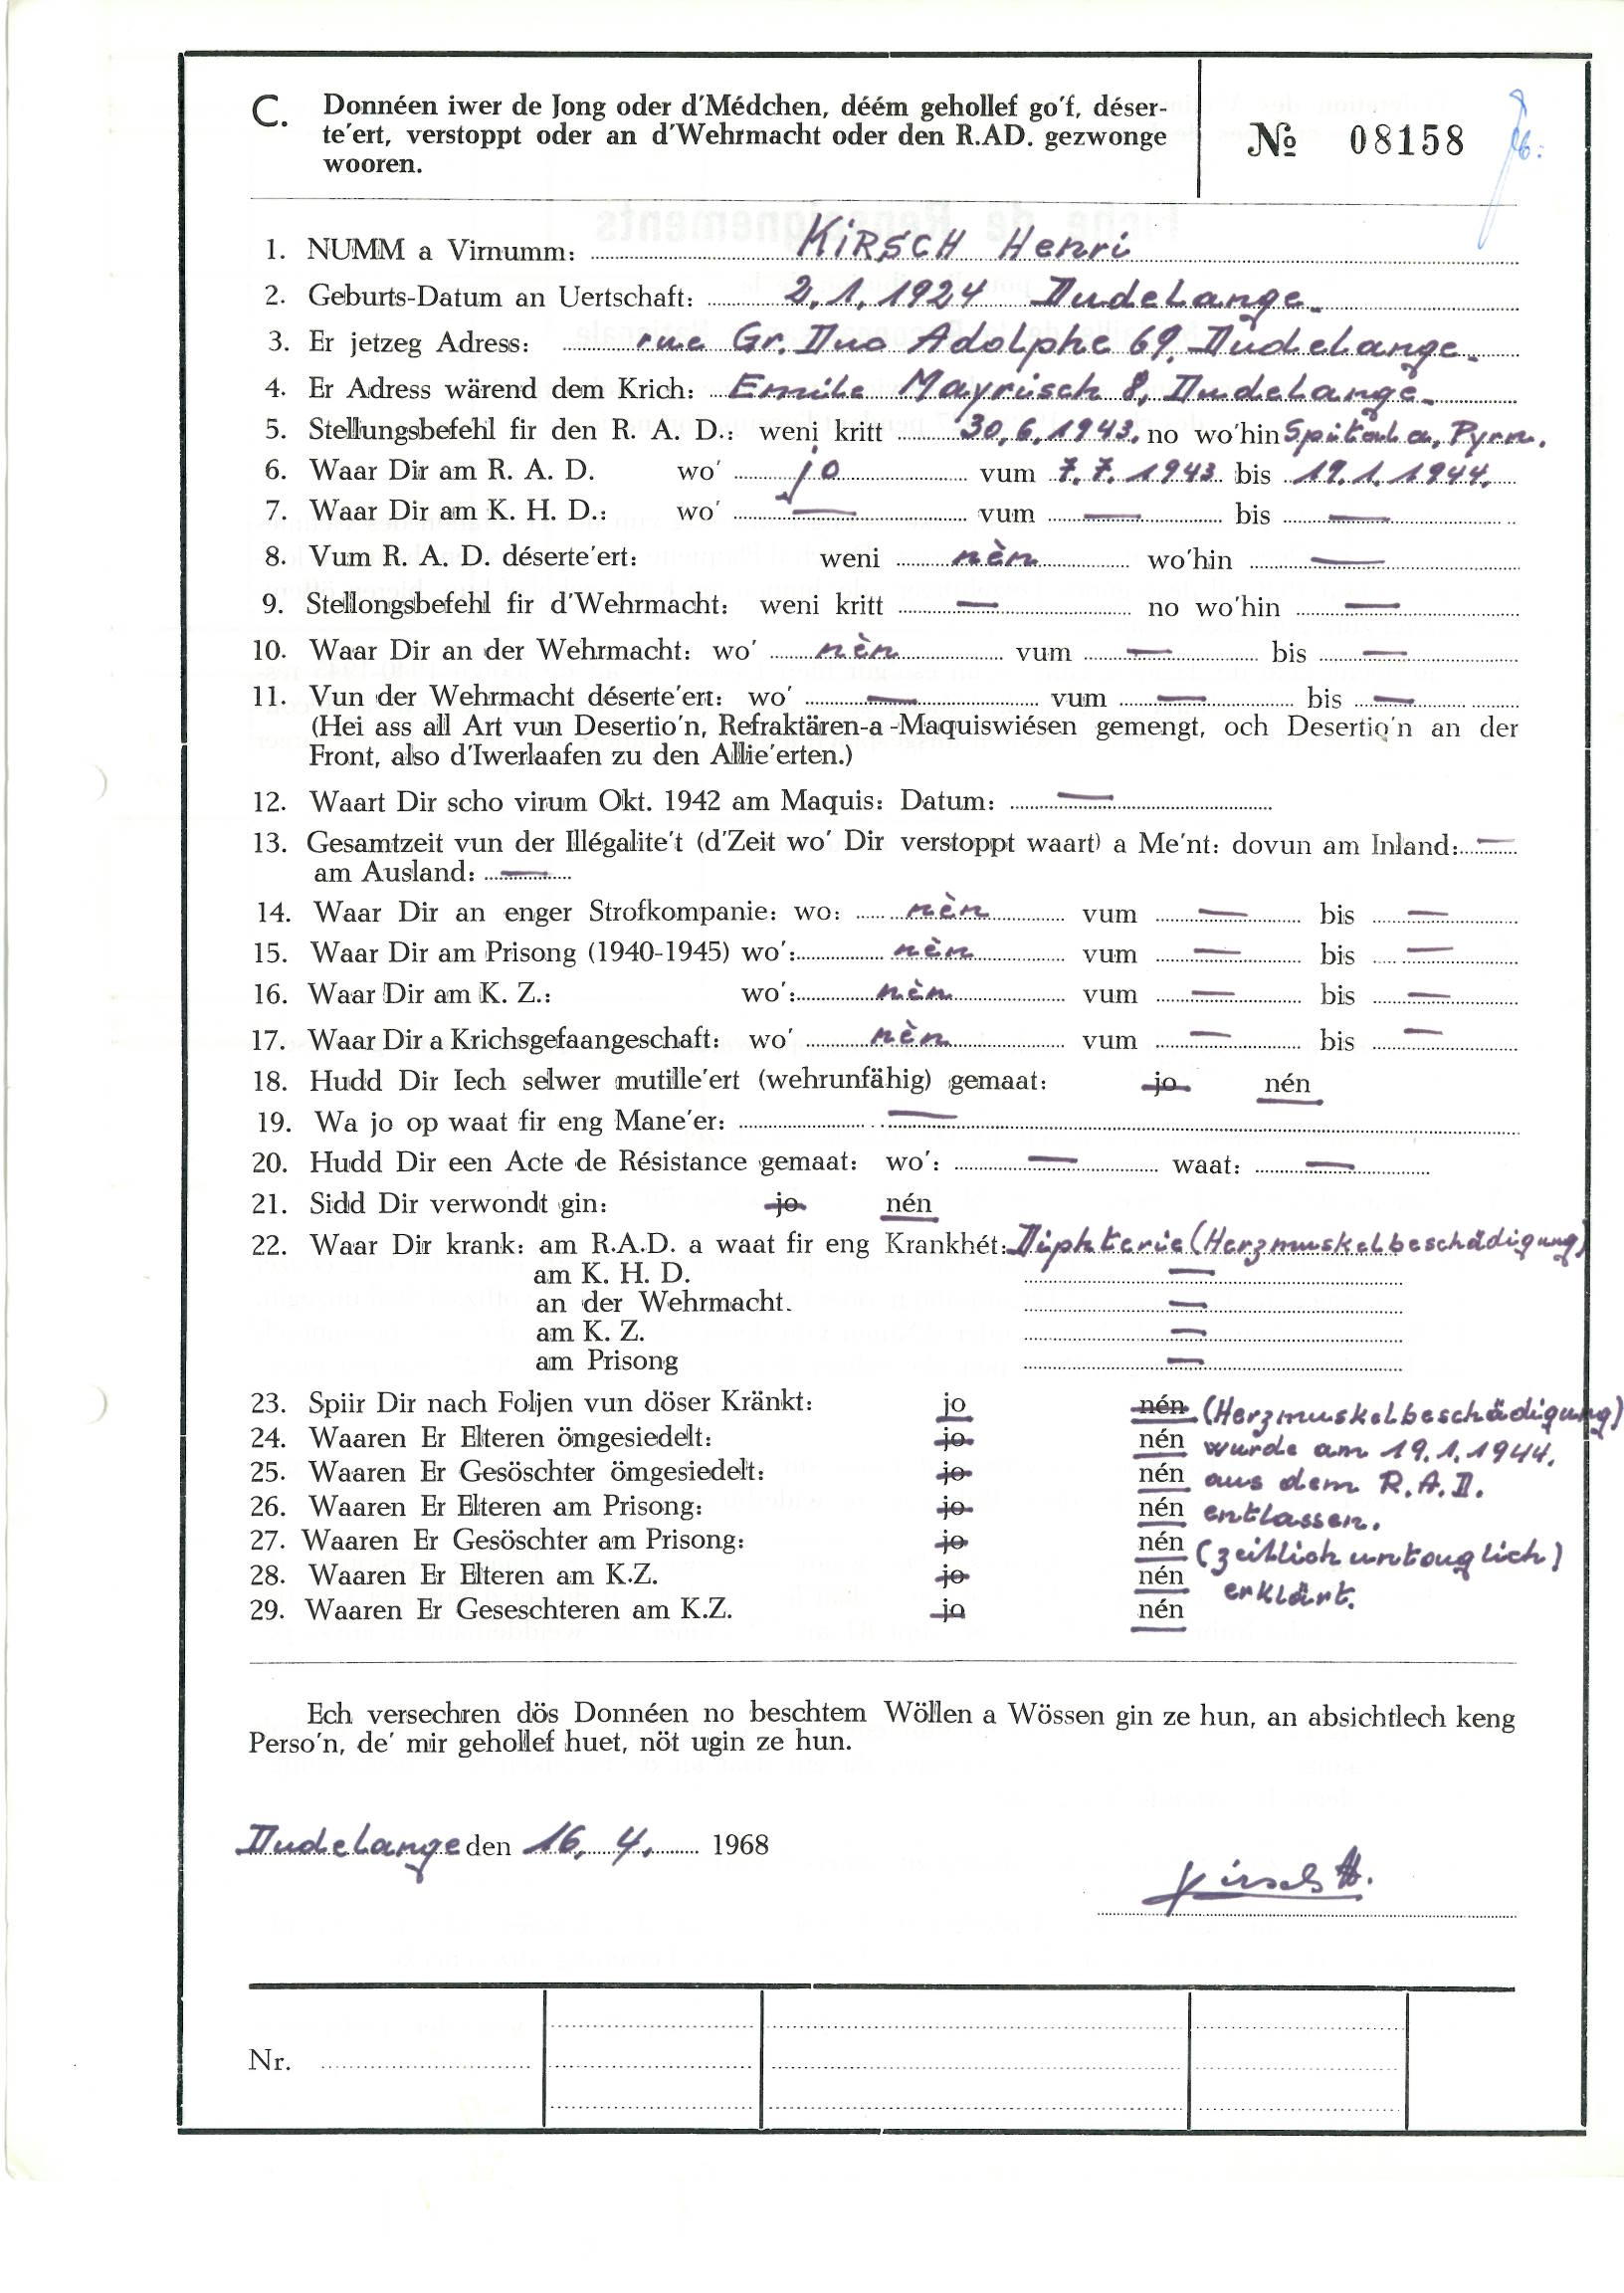 C. Donnéen iwer de Jong oder d'Médchen, déém gehollef go'f, déser-
te'ert, verstoppt oder an d'Wehrmacht oder den R.AD. gezwonge
wooren.
№ 08158
1. NUMM a Virnumm: KiRSCH Henri
2. Geburts-Datum an Uertschaft: 2.1.1924 Dudelange.
3. Er jetzeg Adress: rue Gr. Duc Adolphe 69. Dudelange.
4. Er Adress wärend dem Krich: Emile Mayrisch 8, Dudelange.
5. Stellungsbefehl fir den R. A. D.: weni kritt 30.6.1943. no wo'hin Pyrm.
6. Waar Dir am R. A. D. wo' jo vum 7.7.1943 bis 19.1.1944.
7. Waar Dir am K. H. D.: wo' — vum — bis —
8. Vum R. A. D. déserte'ert: weni nèn wo'hin —
9. Stellongsbefehl fir d'Wehrmacht: weni kritt — no wo'hin —
10. Waar Dir an der Wehrmacht: wo' nèn vum — bis —
11. Vun der Wehrmacht déserte'ert: wo' — vum — bis —
(Hei ass all Art vun Desertio'n, Refraktären-a -Maquiswiésen gemengt, och Desertio'n an der
Front, also d'Iwerlaafen zu den Allie'erten.)
12. Waart Dir scho virum Okt. 1942 am Maquis: Datum: —
13. Gesamtzeit vun der Illégalite't (d'Zeit wo' Dir verstoppt waart) a Me'nt: dovun am Inland: —
am Ausland: —
14. Waar Dir an enger Strofkompanie: wo: nèn vum — bis —
15. Waar Dir am Prisong (1940-1945) wo': nèn vum — bis —
16. Waar Dir am K. Z.: wo': nèn vum — bis —
17. Waar Dir a Krichsgefaangeschaft: wo' nèn vum — bis —
18. Hudd Dir Iech selwer mutille'ert (wehrunfähig) gemaat: jo nén
19. Wa jo op waat fir eng Mane'er: —
20. Hudd Dir een Acte de Résistance gemaat: wo': — waat: —
21. Sidd Dir verwondt gin: jo nén
22. Waar Dir krank: am R.A.D. a waat fir eng Krankhét: Diphterie (Herzmuskelbeschädigung)
am K. H. D. —
an der Wehrmacht. —
am K. Z. —
am Prisong —
23. Spiir Dir nach Foljen vun döser Kränkt: jo nén (Herzmuskelbeschädigung)
24. Waaren Er Elteren ömgesiedelt: jo nén wurde am 19.1.1944.
25. Waaren Er Gesöschter ömgesiedelt: jo nén aus dem R.A.D.
26. Waaren Er Elteren am Prisong: jo nén entlassen.
27. Waaren Er Gesöschter am Prisong: jo nén (zeitlich untauglich)
28. Waaren Er Elteren am K.Z. jo nén erklärt.
29. Waaren Er Geseschteren am K.Z. jo nén
Ech versechren dös Donnéen no beschtem Wöllen a Wössen gin ze hun, an absichtlech keng
Perso'n, de' mir gehollef huet, nöt ugin ze hun.
Dudelange den 16. 4. 1968
Kirsch H.
Nr.